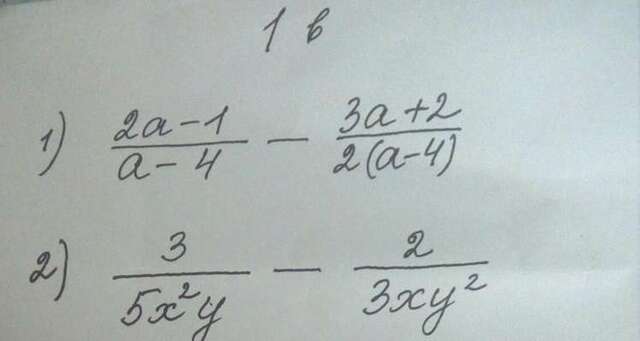 1 в
1) (2a-1)/(a-4) - (3a+2)/(2(a-4))
2) 3/(5x²y) - 2/(3xy²)